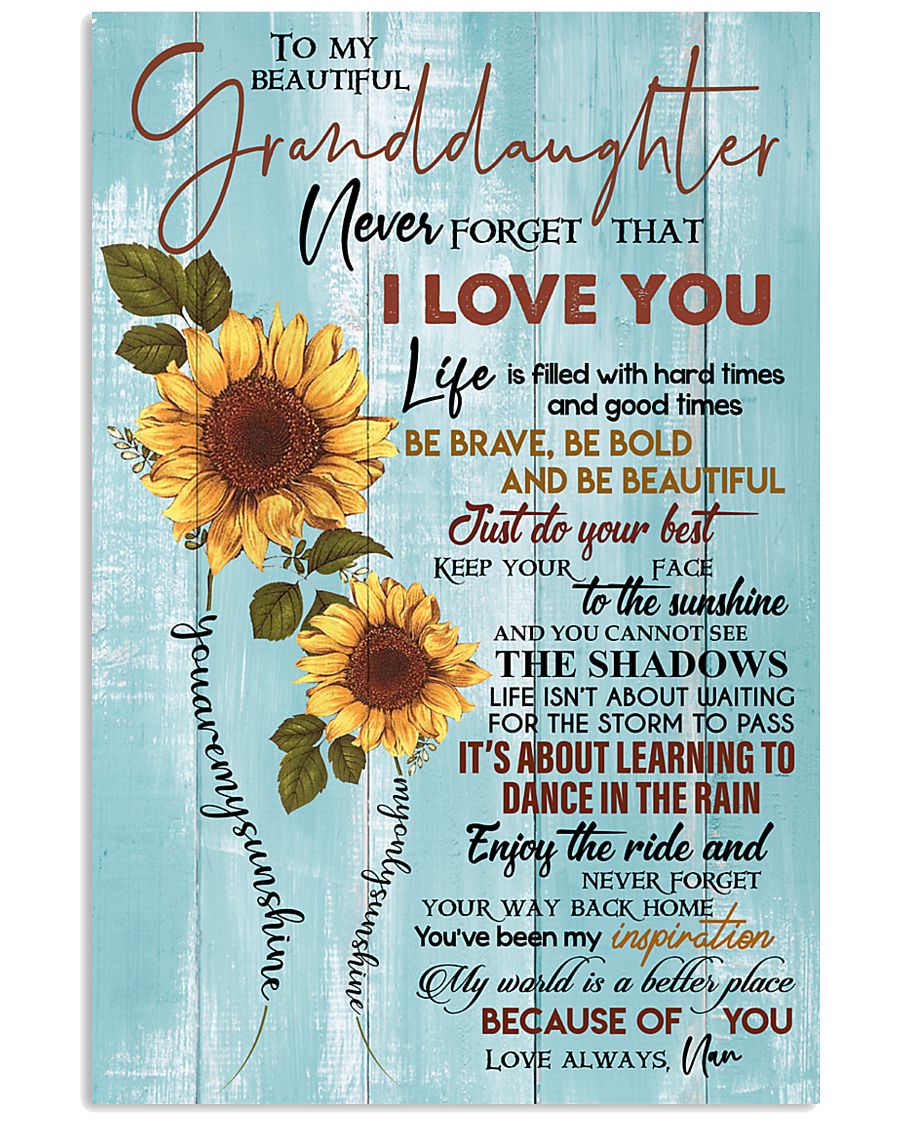 TO MY
BEAUTIFUL
Granddaughter
Never FORGET THAT
I LOVE YOU
Life is filled with hard times
and good times
BE BRAVE, BE BOLD
AND BE BEAUTIFUL
Just do your best
KEEP YOUR FACE
to the sunshine
AND YOU CANNOT SEE
THE SHADOWS
LIFE ISN'T ABOUT WAITING
FOR THE STORM TO PASS
IT'S ABOUT LEARNING TO
DANCE IN THE RAIN
Enjoy the ride and
NEVER FORGET
YOUR WAY BACK HOME
You've been my inspiration
My world is a better place
BECAUSE OF YOU
LOVE ALWAYS, Nan
youaremysunshine
myonlysunshine